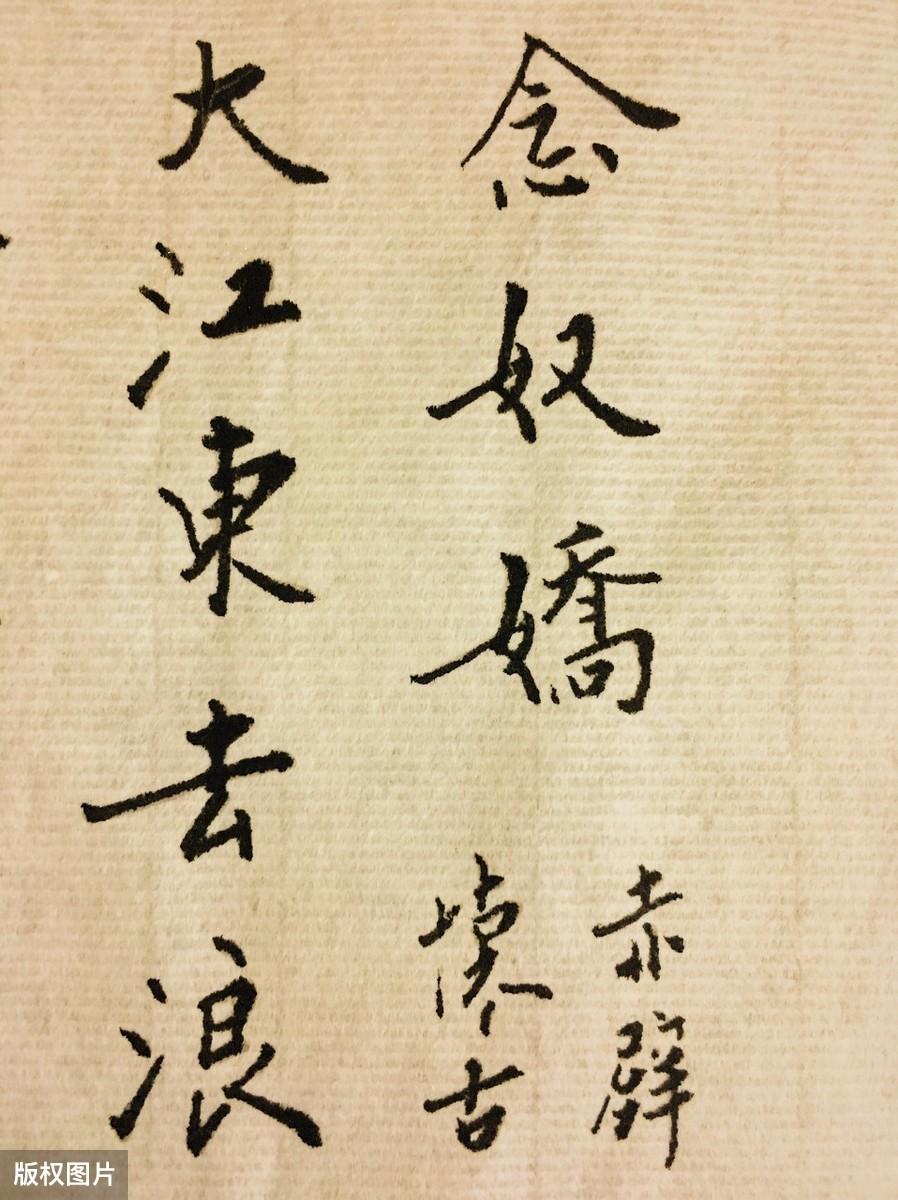 念奴嬌
赤壁
懷古
大江東去浪
版权图片